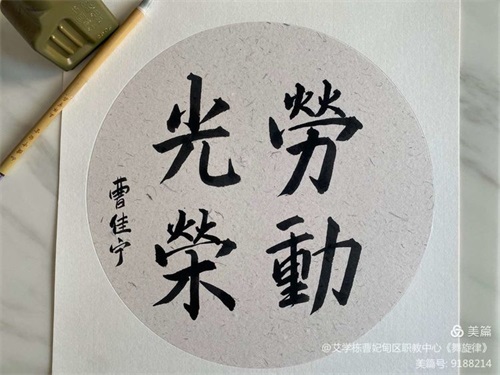 勞動
光榮
曹佳宁
美篇
@艾学栋曹妃甸区职教中心《舞旋律》
美篇号: 9188214